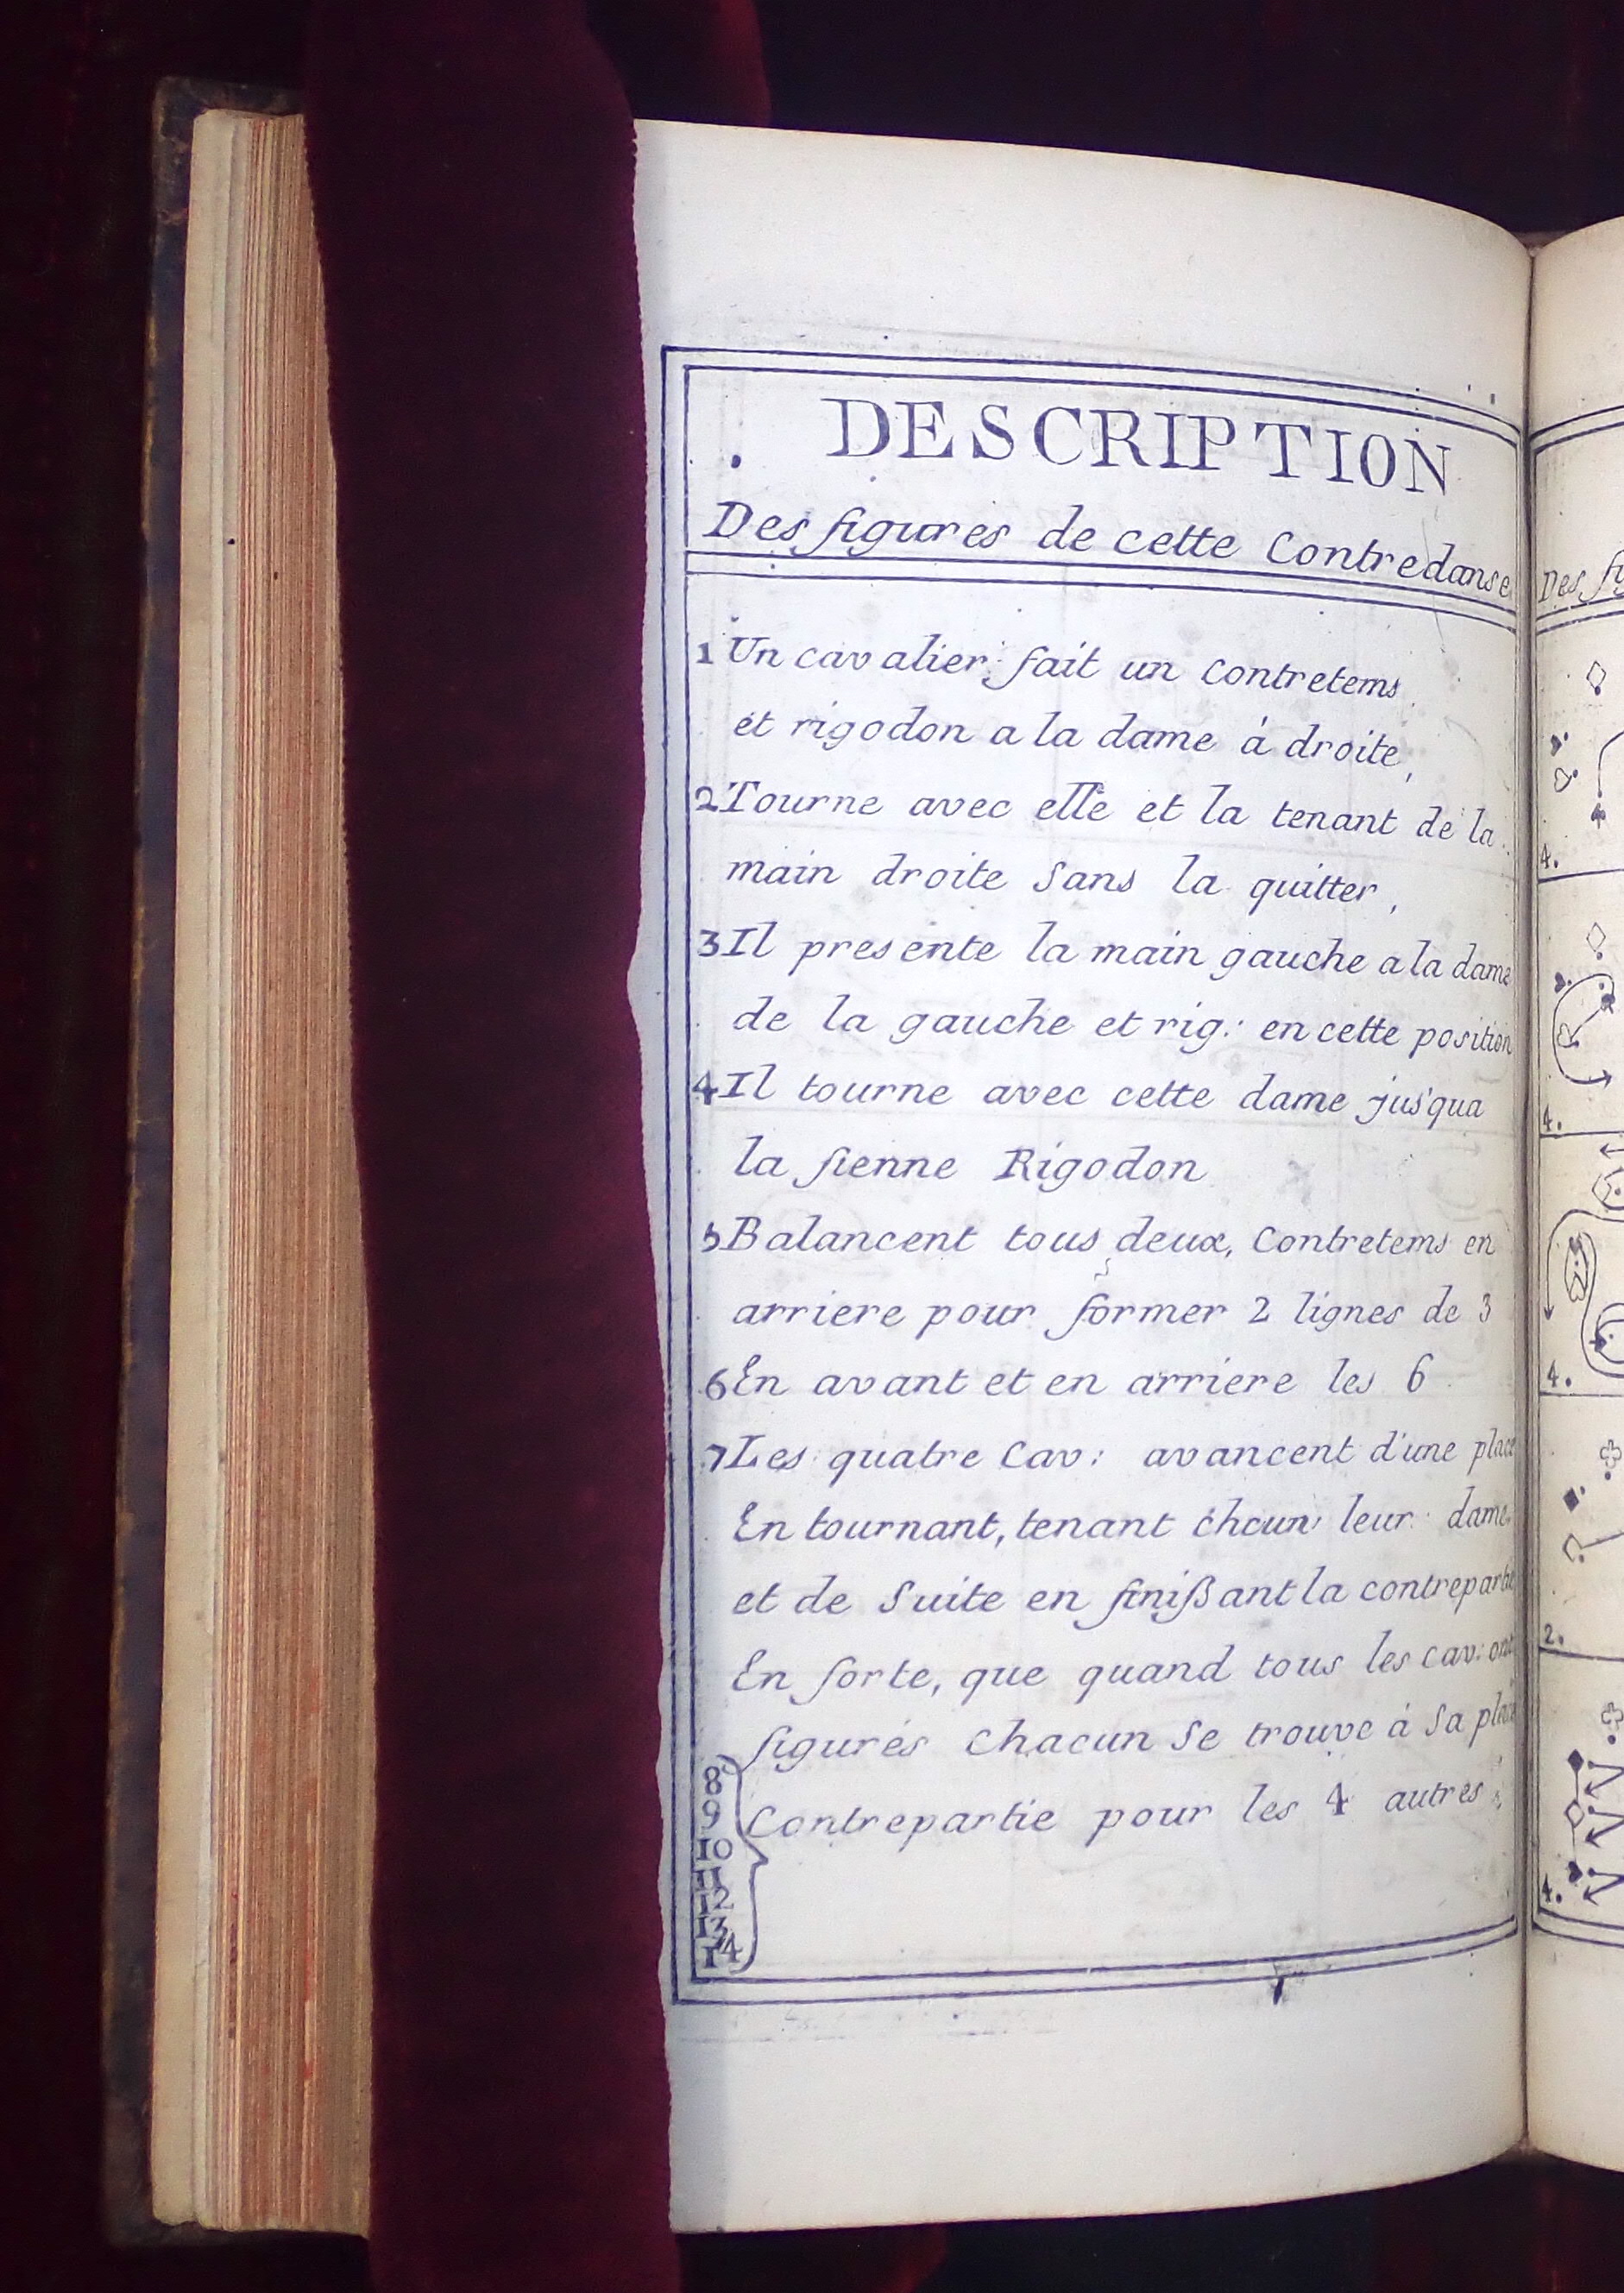 DESCRIPTION
Des figures de cette Contredanse
1 Un cavalier fait un contretems
et rigodon a la dame à droite,
2 Tourne avec elle et la tenant de la
main droite sans la quitter,
3 Il presente la main gauche a la dame
de la gauche et rig: en cette position
4 Il tourne avec cette dame jus'qua
la sienne Rigodon
5 Balancent tous deux, Contretems en
arriere pour former 2 lignes de 3
6 En avant et en arriere les 6
7 Les quatre Cav: avancent d'une place
En tournant, tenant chcun leur dame
et de Suite en finißant la contrepartie
En sorte, que quand tous les cav: ont
figurés chacun Se trouve à Sa place
8
9 Contrepartie pour les 4 autres
10
11
12
13
14
Des
4.
4.
4.
2.
4.